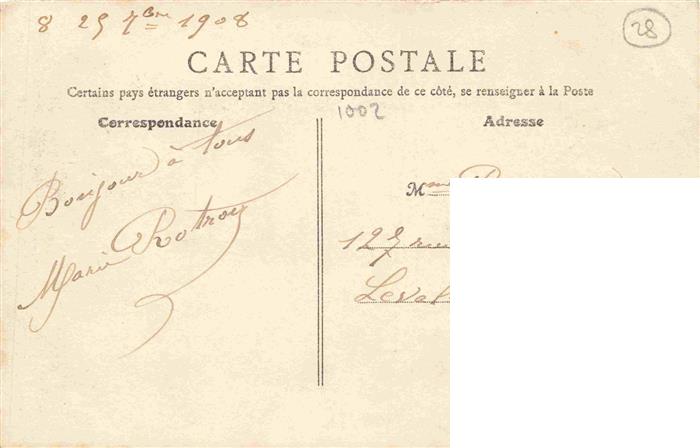 8 25 7bre 1908
28
CARTE POSTALE
Certains pays étrangers n'acceptant pas la correspondance de ce côté, se renseigner à la Poste
1002
Correspondance
Bonjour à tous
Marie Rotrou
Adresse
Mme
127 rue